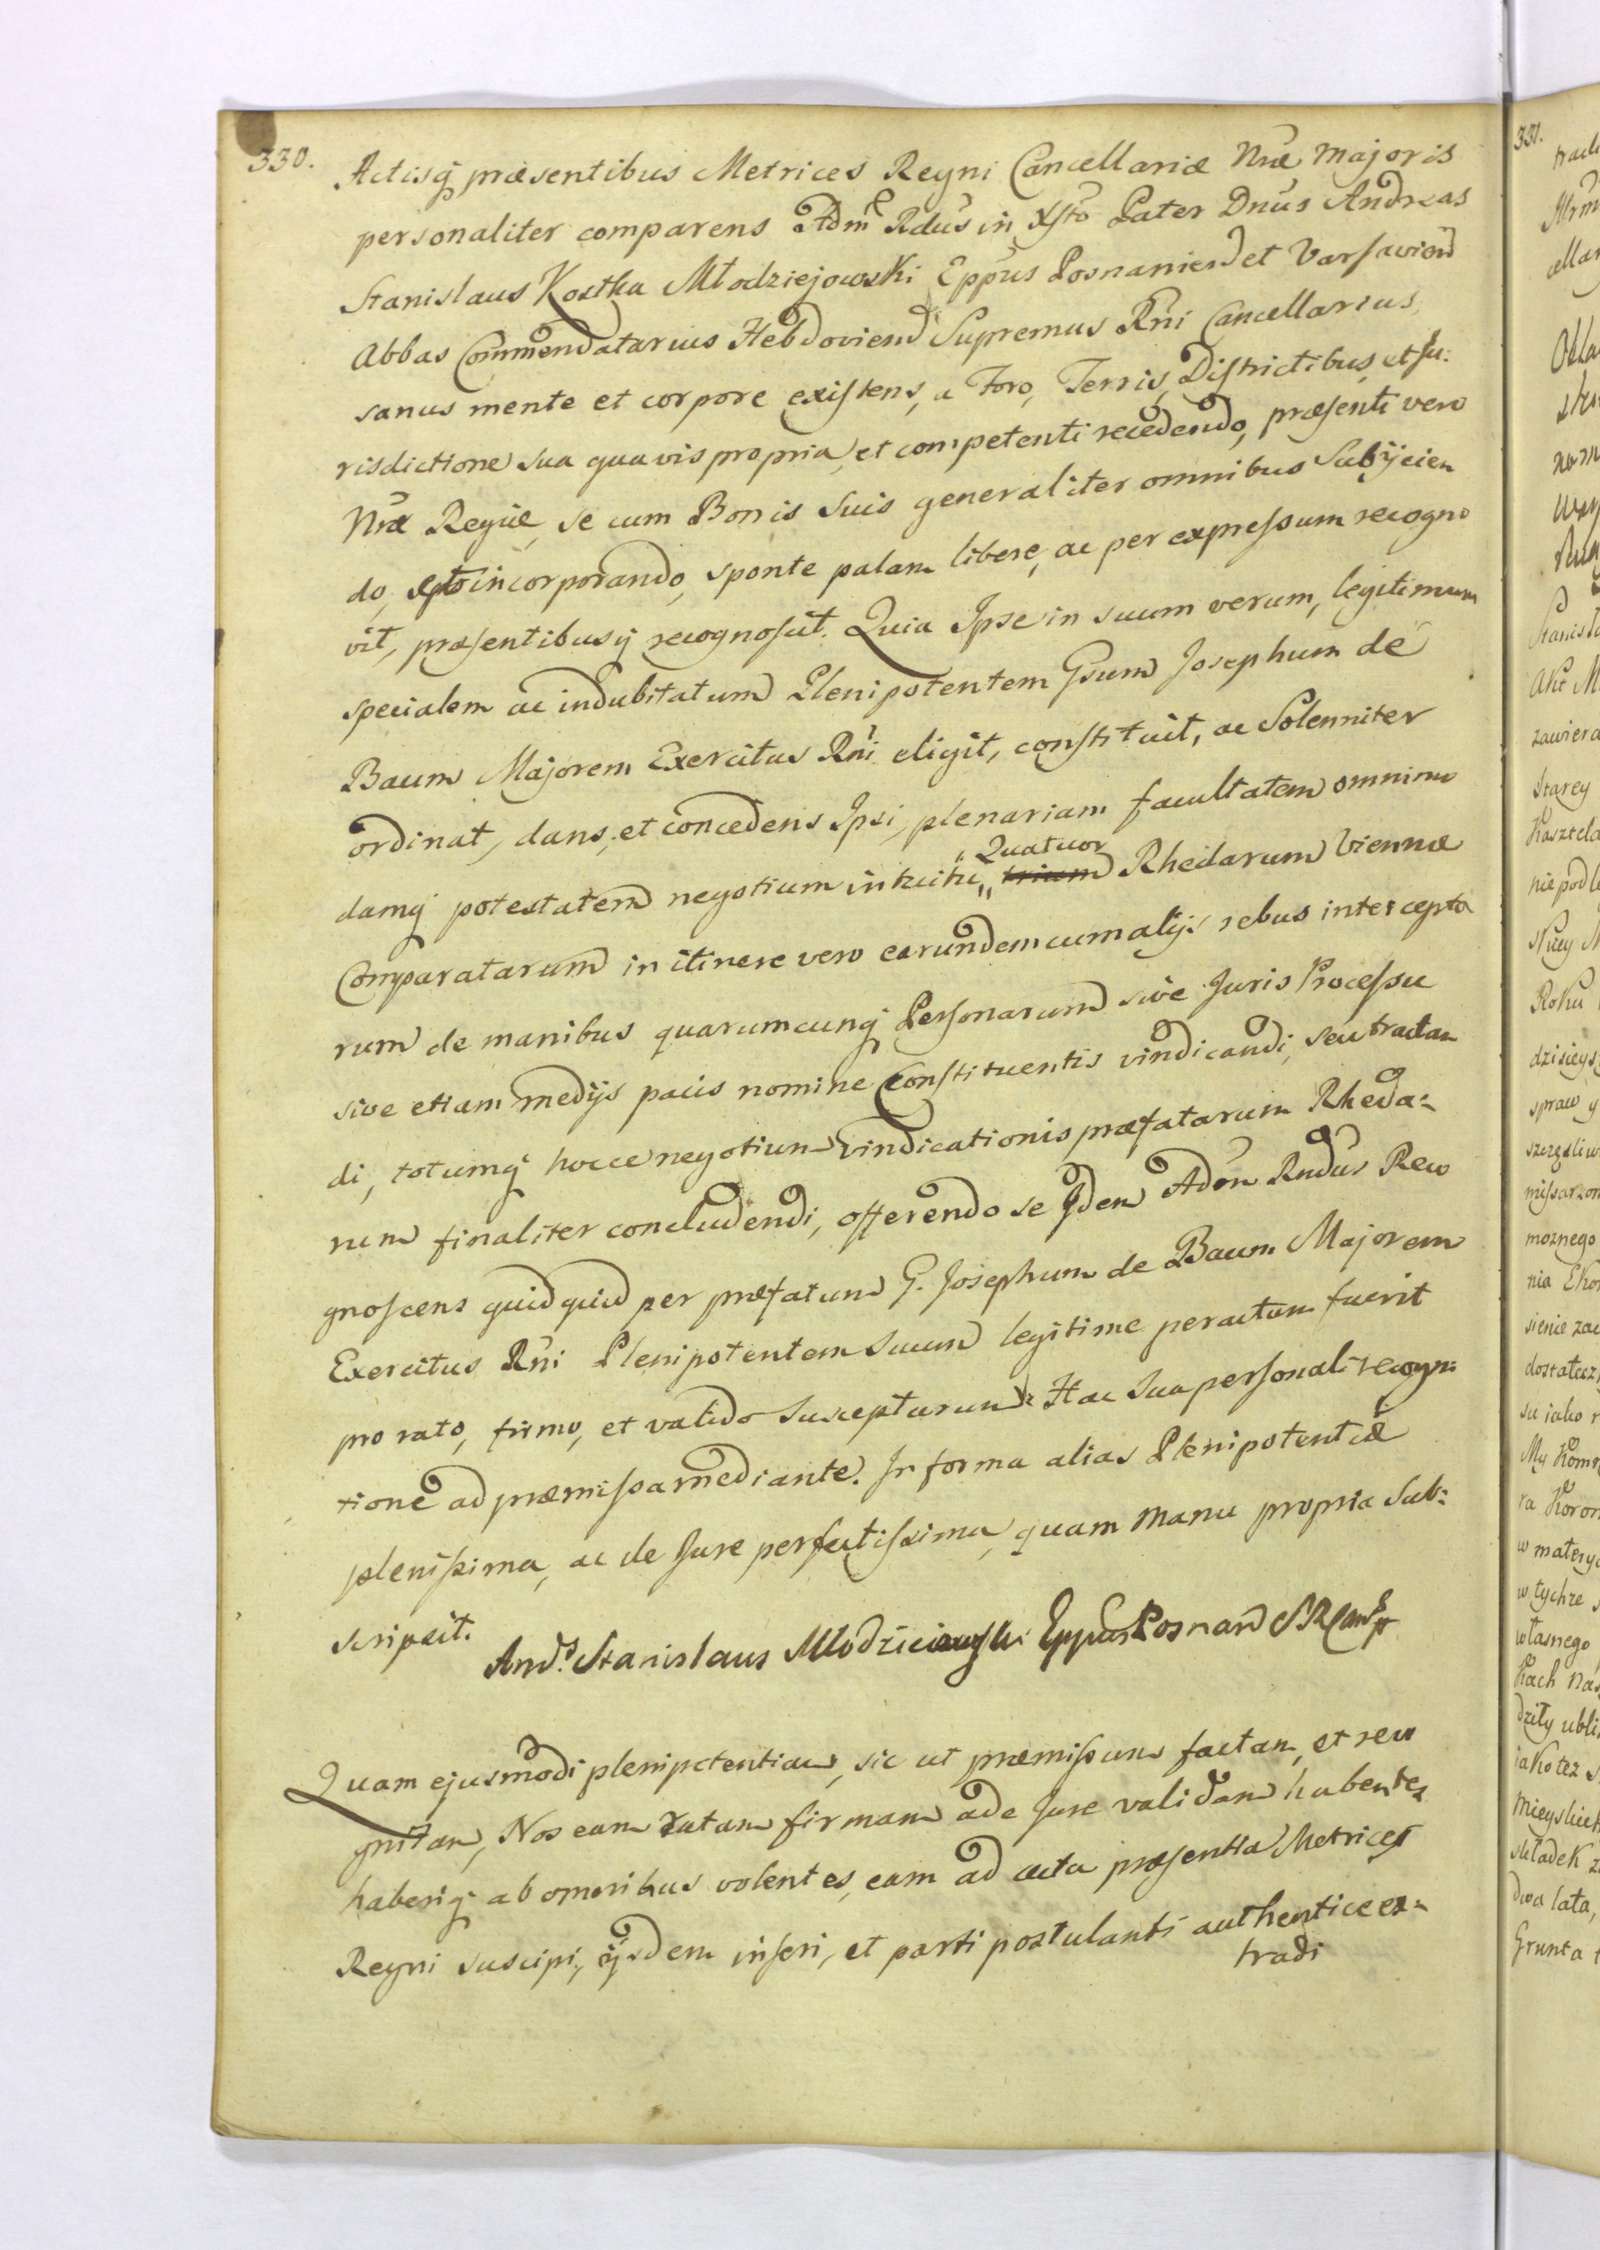 330.
Actisq́ præsentibus Metrices Regni Cancellariæ Nræ Majoris
personaliter comparens Adm Rdus in Xsto Pater Dnus Andreas
Stanislaus Kostka Młodziejowski Eppus Posnanien et Varsavien
Abbas Commendatarius Hebdovien Supremus Rni Cancellarius
sanus mente et corpore existens, a Foro, Terris, Districtibus, et Ju:
risdictione sua quavis propria, et competenti recedendo, præsenti vero
Nræ Regiæ, se cum Bonis suis generaliter omnibus subijcien
do, incorporando, sponte palam libere, ac per expressum recogno
vit, præsentibusq́ recognoscit. Quia Ipse in suum verum, legitimum
specialem ac indubitatum Plenipotentem Gsum Josephum de
Baum Majorem Exercitus Rni eligit, constituit, ac Solenniter
ordinat, dans, et concedens Ipsi, plenariam facultatem omnimo
damq́ potestatem negotium intuitu „ Quatuor „ trium Rhedarum Viennæ
Comparatarum in itinere vero earundem cum alijs rebus intercepta
rum de manibus quarumcunq́ Personarum sive Juris Processu
sive etiam medijs pacis nomine Constituentis vindicandi, seu tractan
di, totumq́ hocce negotium Vindicationis præfatarum Rheda:
rum finaliter concludendi, offerendo se Idem Adm Rndus Reco
gnoscens quidquid per præfatum G. Josephum de Baum Majorem
Exercitus Rni Plenipotentem suum legitime peractum fuerit
pro rato, firmo, et valido suscepturum. Hac sua personali recogn:
tione ad præmissa mediante. In forma alias Plenipotentiæ
plenissima, ac de Jure perfectissima, quam manu propria sub:
scripsit.
And. Stanislaus Młodzieiowski Eppus Posnan SR Canc
Quam ejusmodi plenipotentiam, sic ut præmissum factam, et reco
gnitam, Nos eam ratam firmam ac de Jure validam habentes
haberiq́ ab omnibus volentes, eam ad acta præsentia Metrices
Regni suscipi, ijsdem inseri, et parti postulanti authentice ex:
tradi
331.